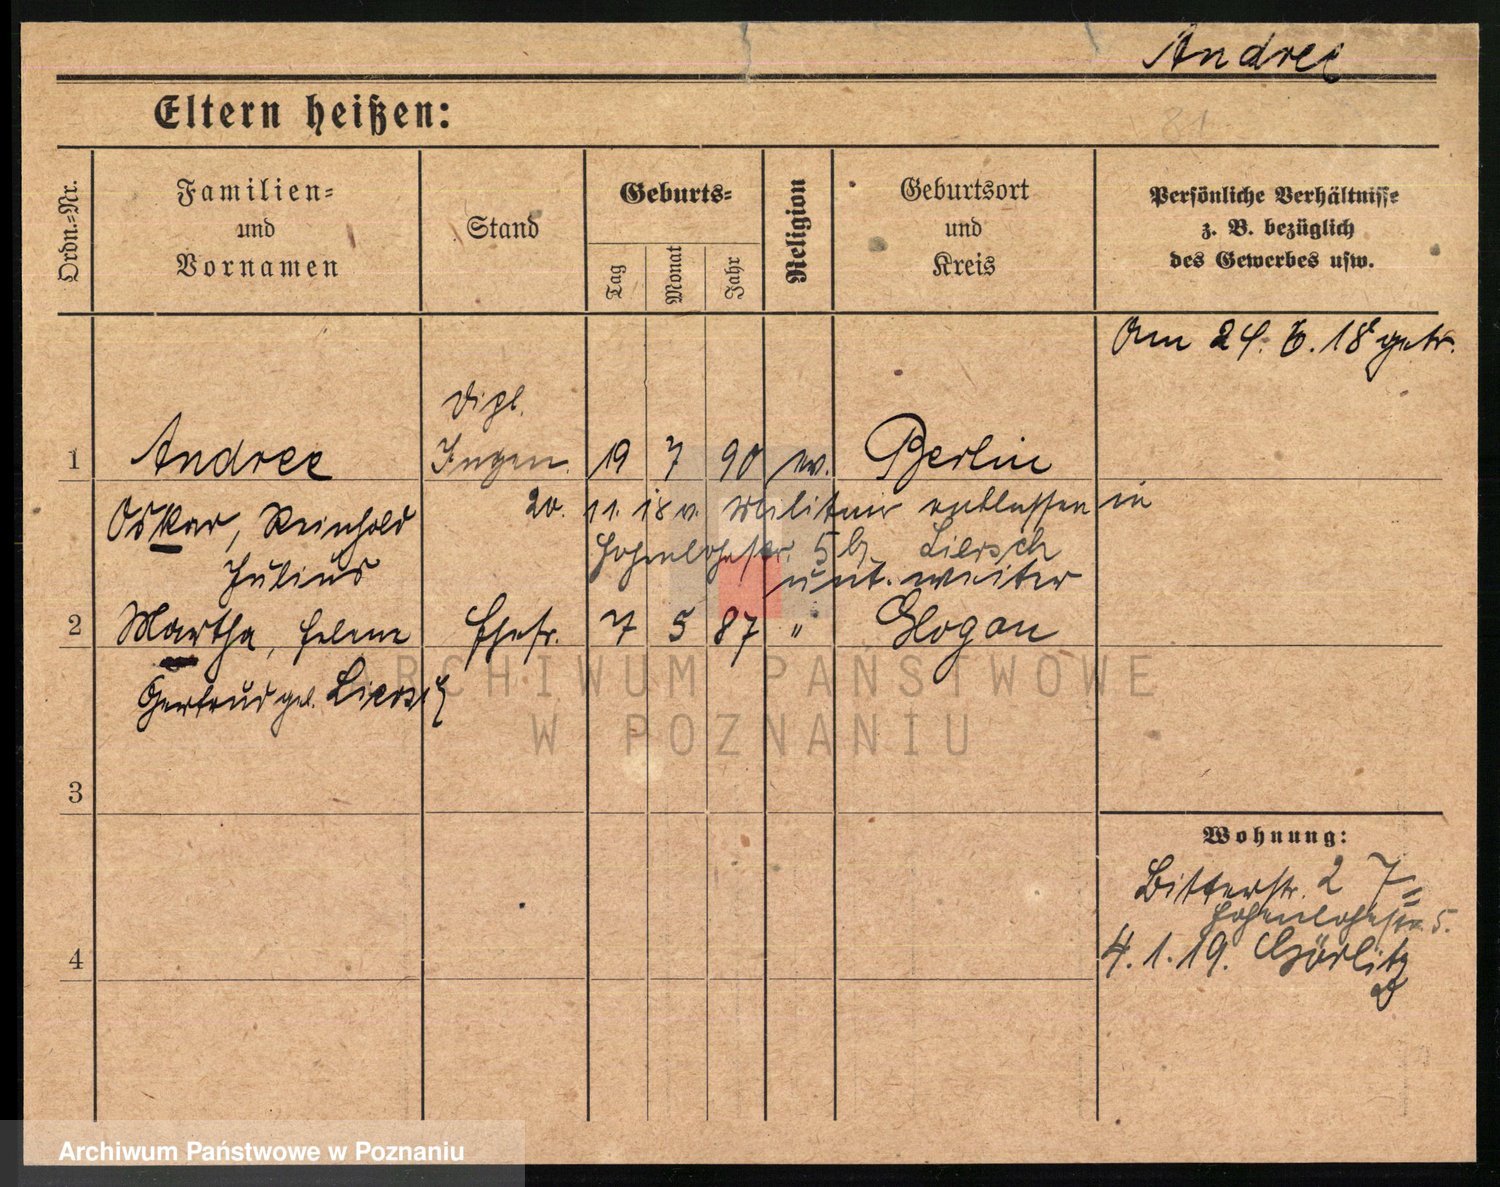 Andree
Eltern heißen:
81
Ordn.-Nr.
Familien-
und
Vornamen
Stand
Geburts-
Tag
Monat
Jahr
Religion
Geburtsort
und
Kreis
Persönliche Verhältnisse
z. B. bezüglich
des Gewerbes usw.
Am 24. 6. 18 getr.
Dipl.
1 Andree Ingen. 19 7 90 ev. Berlin
20. 11. 18 v. Militair entlassen in
Oskar, Reinhold
Hohenlohestr. 5 b. Liersch
Julius
unt. weiter
2 Martha, Helene Ehefr. 7 5 87 " Glogau
Gertrud geb. Liersch
ARCHIWUM PAŃSTWOWE
W POZNANIU
3
Wohnung:
Bitterstr. 27
Hohenlohestr. 5.
4 4.1.19. Görlitz
Archiwum Państwowe w Poznaniu